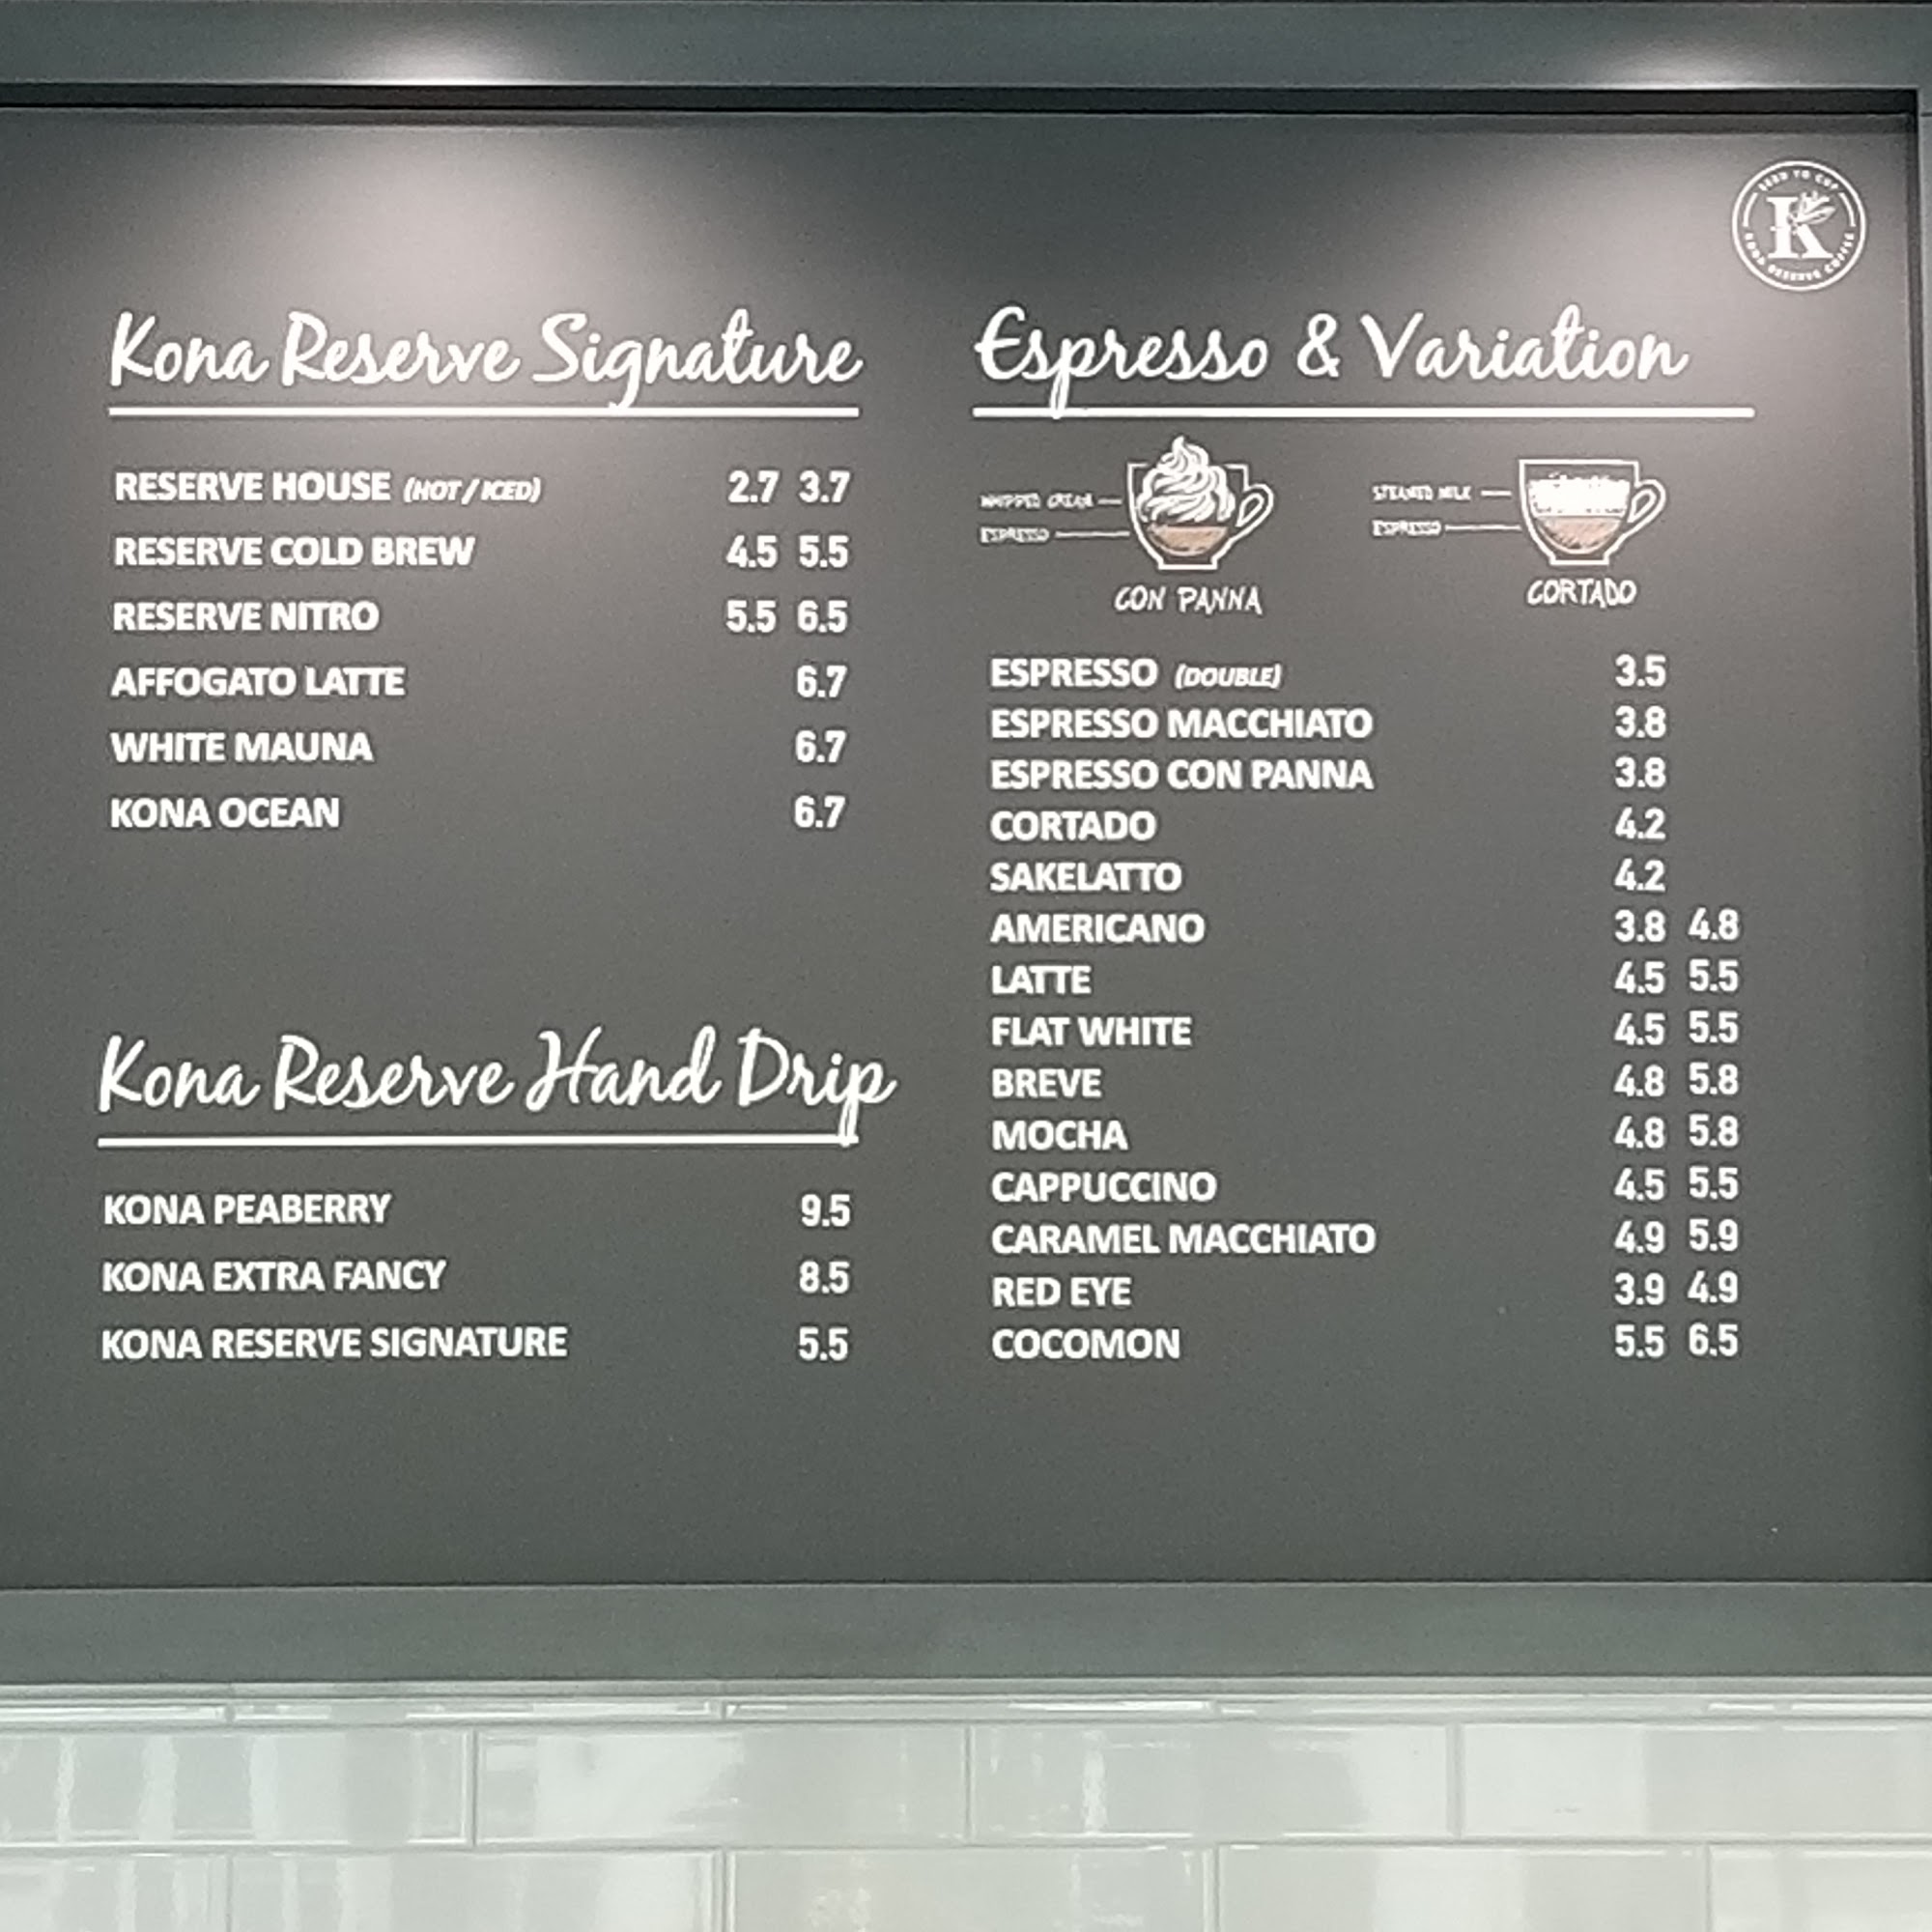 SEED TO CUP
K
KONA RESERVE COFFEE
Kona Reserve Signature
RESERVE HOUSE (HOT / ICED) 2.7 3.7
RESERVE COLD BREW 4.5 5.5
RESERVE NITRO 5.5 6.5
AFFOGATO LATTE 6.7
WHITE MAUNA 6.7
KONA OCEAN 6.7
Kona Reserve Hand Drip
KONA PEABERRY 9.5
KONA EXTRA FANCY 8.5
KONA RESERVE SIGNATURE 5.5
Espresso & Variation
WHIPPED CREAM
ESPRESSO
CON PANNA
STEAMED MILK
ESPRESSO
CORTADO
ESPRESSO (DOUBLE) 3.5
ESPRESSO MACCHIATO 3.8
ESPRESSO CON PANNA 3.8
CORTADO 4.2
SAKELATTO 4.2
AMERICANO 3.8 4.8
LATTE 4.5 5.5
FLAT WHITE 4.5 5.5
BREVE 4.8 5.8
MOCHA 4.8 5.8
CAPPUCCINO 4.5 5.5
CARAMEL MACCHIATO 4.9 5.9
RED EYE 3.9 4.9
COCOMON 5.5 6.5